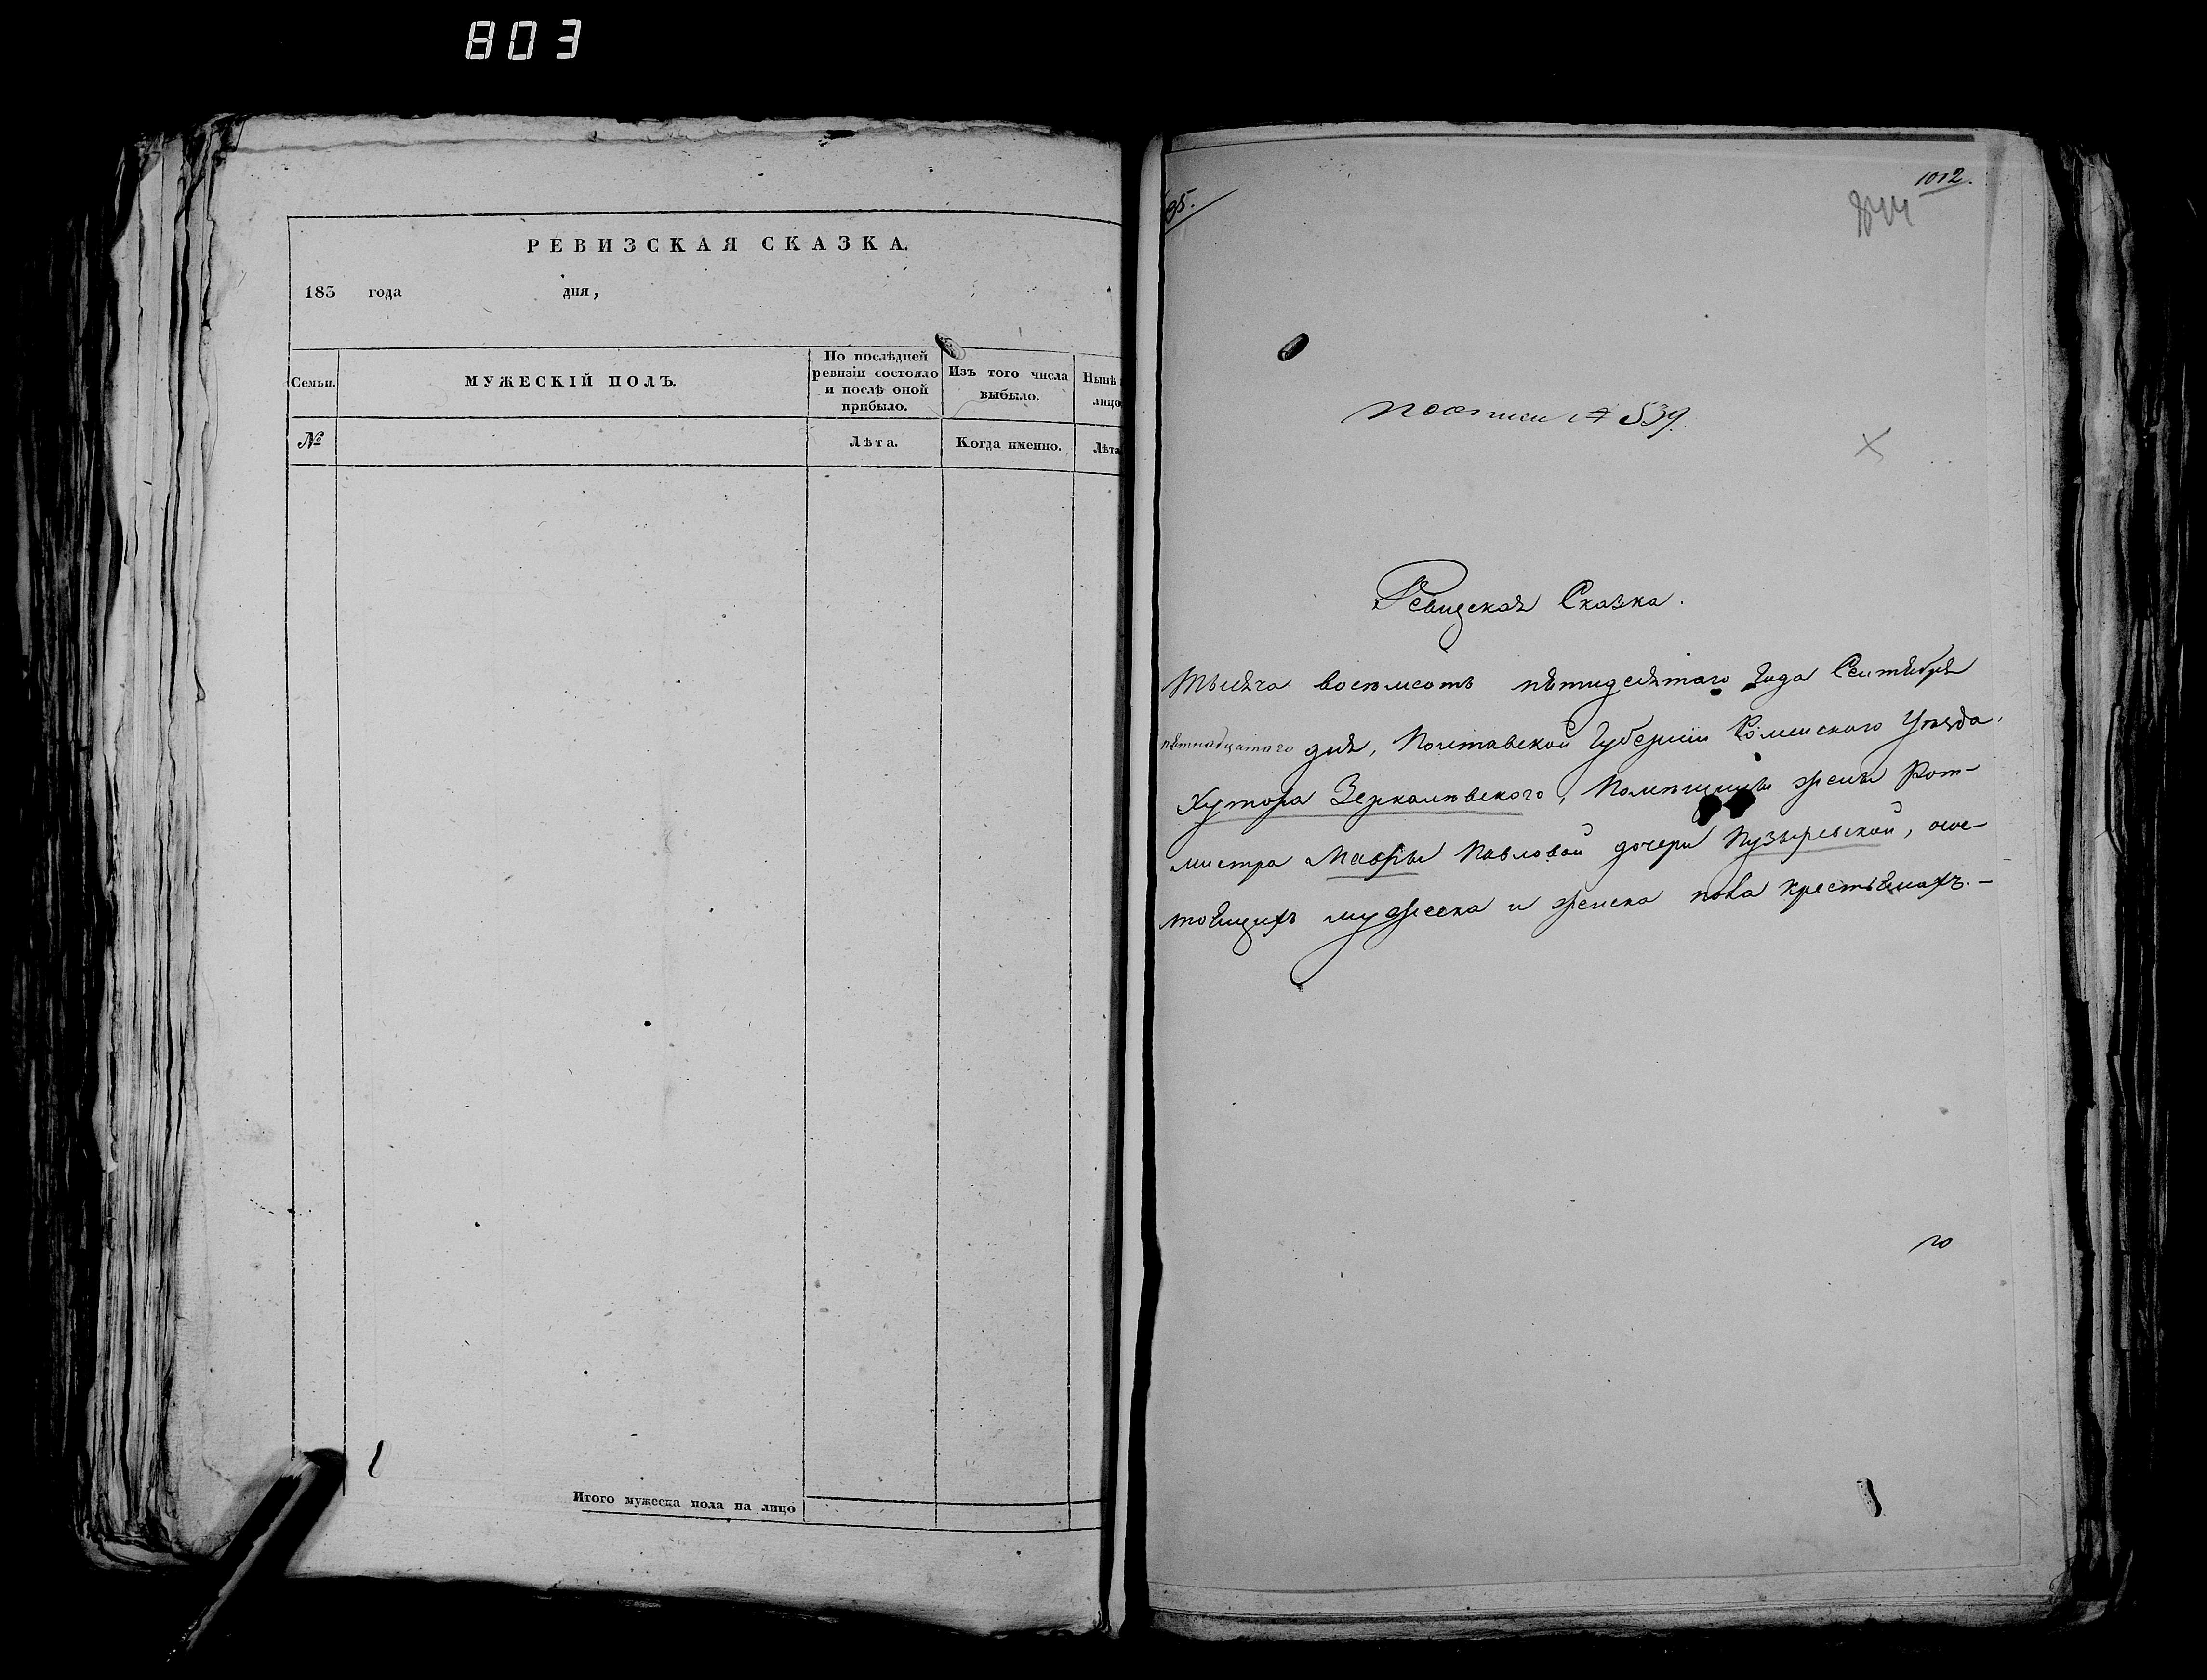 803
РЕВИЗСКАЯ СКАЗКА.
183 года дня,
Семьи.
МУЖЕСКІЙ ПОЛЪ.
По послѣдней
ревизіи состояло
и послѣ оной
прибыло.
Изъ того числа
выбыло.
Нынѣ
лицо
№
Лѣта.
Когда именно.
Лѣта
Итого мужеска пола на лицо
1012.
844
95.
по описи № 539
Ревизская Сказка.
Тысяча восемьсотъ пятидесятаго Года Сентября
пятнадцатаго дня, Полтавской Губерніи Роменского Уѣзда.
Хутора Зеркалѣвского, Помѣщицы жены Рот-
мистра Мавры Павловой дочери Пузыревской, осос-
тоящихъ мужеска и женска пола крестьянахъ.-